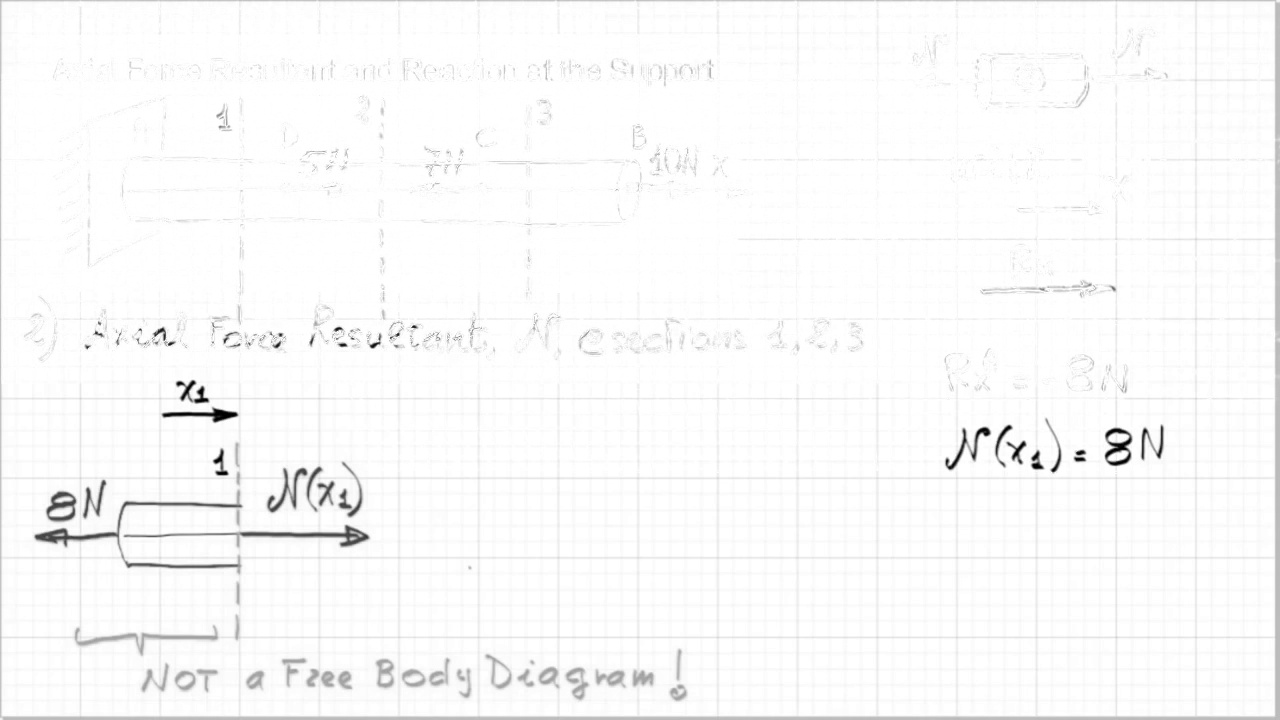 Axial Force Resultant and Reaction at the Support
N N
1 2 3
A D C B
5N 7N 10N x
x
Rx
2) Axial Force Resultant, N, @sections 1,2,3
Rx = -8N
x1
N(x1) = 8N
1
8N N(x1)
NOT a Free Body Diagram!